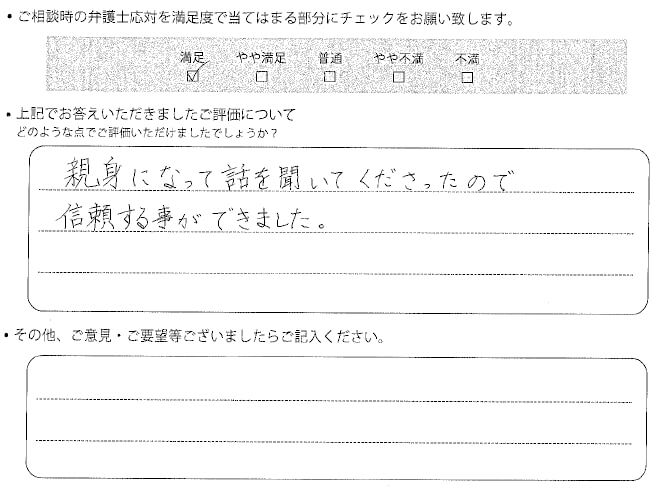 ・ご相談時の弁護士応対を満足度で当てはまる部分にチェックをお願い致します。
満足 やや満足 普通 やや不満 不満
☑ □ □ □ □
・上記でお答えいただきましたご評価について
どのような点でご評価いただけましたでしょうか？
親身になって話を聞いてくださったので
信頼する事ができました。
・その他、ご意見・ご要望等ございましたらご記入ください。